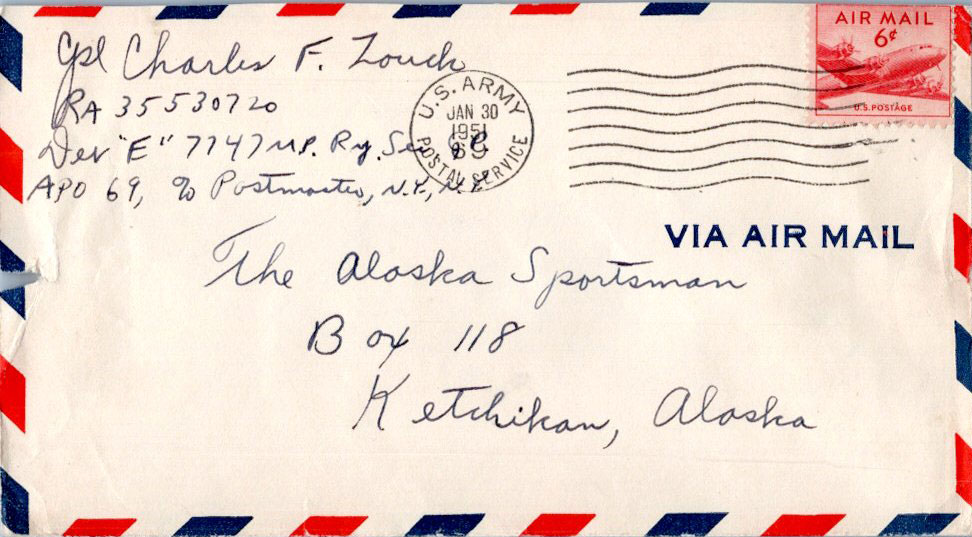 Cpl Charles F. Zouck
RA 35530720
Det "E" 7747 M.P. Ry. Se
APO 69, c/o Postmaster, N.Y., N.Y.
U.S. ARMY
JAN 30
1951
69
POSTAL SERVICE
AIR MAIL
6¢
U.S. POSTAGE
VIA AIR MAIL
The Alaska Sportsman
Box 118
Ketchikan, Alaska